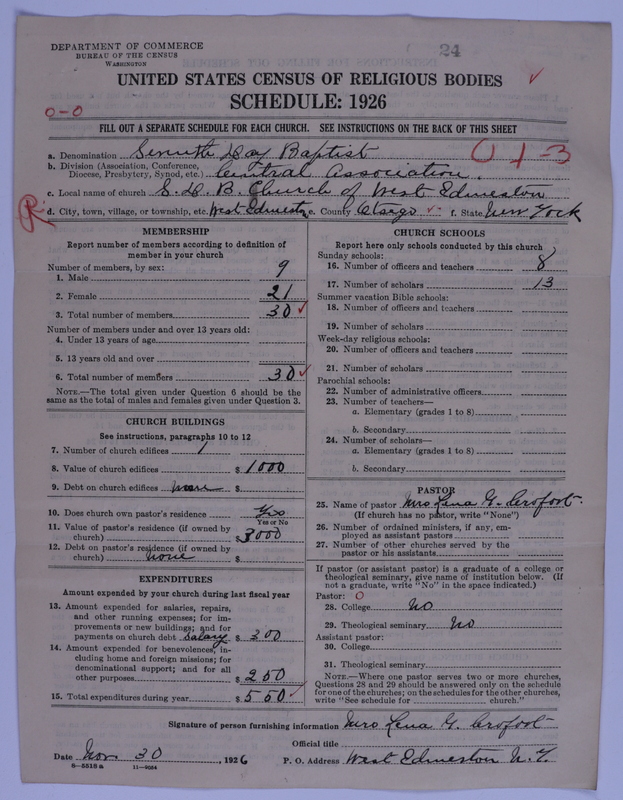 DEPARTMENT OF COMMERCE
BUREAU OF THE CENSUS
WASHINGTON
24
UNITED STATES CENSUS OF RELIGIOUS BODIES
SCHEDULE: 1926
0-0
FILL OUT A SEPARATE SCHEDULE FOR EACH CHURCH. SEE INSTRUCTIONS ON THE BACK OF THIS SHEET
a. Denomination Seventh Day Baptist
b. Division (Association, Conference, Diocese, Presbytery, Synod, etc.) Central Association.
0 1-3
c. Local name of church S. D. B. Church of West Edmeston
R
d. City, town, village, or township, etc. West Edmeston e. County Otsego f. State New York
MEMBERSHIP
Report number of members according to definition of
member in your church
Number of members, by sex:
1. Male 9
2. Female 21
3. Total number of members 30
Number of members under and over 13 years old:
4. Under 13 years of age
5. 13 years old and over
6. Total number of members 30
NOTE.—The total given under Question 6 should be
same as the total of males and females given under Question 3.
CHURCH BUILDINGS
See instructions, paragraphs 10 to 12
7. Number of church edifices 1
8. Value of church edifices $ 1000
9. Debt on church edifices none $
10. Does church own pastor's residence Yes
Yes or No
11. Value of pastor's residence (if owned by
church) $ 3000
12. Debt on pastor's residence (if owned by
church) none $
EXPENDITURES
Amount expended by your church during last fiscal year
13. Amount expended for salaries, repairs,
and other running expenses; for im-
provements or new buildings; and for
payments on church debt Salary $ 300
14. Amount expended for benevolences, in-
cluding home and foreign missions; for
denominational support; and for all
other purposes $ 250
15. Total expenditures during year $ 550
CHURCH SCHOOLS
Report here only schools conducted by this church
Sunday schools:
16. Number of officers and teachers 8
17. Number of scholars 13
Summer vacation Bible schools:
18. Number of officers and teachers
19. Number of scholars
Week-day religious schools:
20. Number of officers and teachers
21. Number of scholars
Parochial schools:
22. Number of administrative officers
23. Number of teachers—
a. Elementary (grades 1 to 8)
b. Secondary
24. Number of scholars—
a. Elementary (grades 1 to 8)
b. Secondary
PASTOR
25. Name of pastor Mrs Lena G. Crofoot.
(If church has no pastor, write "None")
26. Number of ordained ministers, if any, em-
ployed as assistant pastors
27. Number of other churches served by the
pastor or his assistants
If pastor (or assistant pastor) is a graduate of a college or
theological seminary, give name of institution below. (If
not a graduate, write "No" in the space indicated.)
Pastor: 0
28. College No
29. Theological seminary No
Assistant pastor:
30. College
31. Theological seminary
NOTE.—Where one pastor serves two or more churches,
Questions 28 and 29 should be answered only on the schedule
for one of the churches; on the schedules for the other churches,
write "See schedule for church."
Signature of person furnishing information Mrs Lena G. Crofoot
Official title
Date Nov. 30, 1926 P. O. Address West Edmeston N. Y.
8—5518 a 11—9624